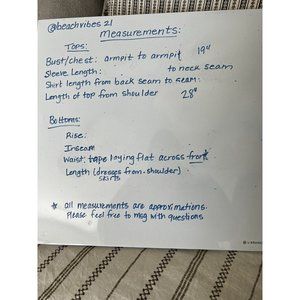 @beachvibes21
Measurements:
Tops:
Bust/chest: armpit to armpit 19"
Sleeve Length: to neck seam
Shirt length from back seam to seam:
Length of top from shoulder 28"
Bottoms:
Rise:
Inseam
Waist: tape laying flat across front
Length (dresses from shoulder)
skirts
* all measurements are approximations.
Please feel free to msg with questions